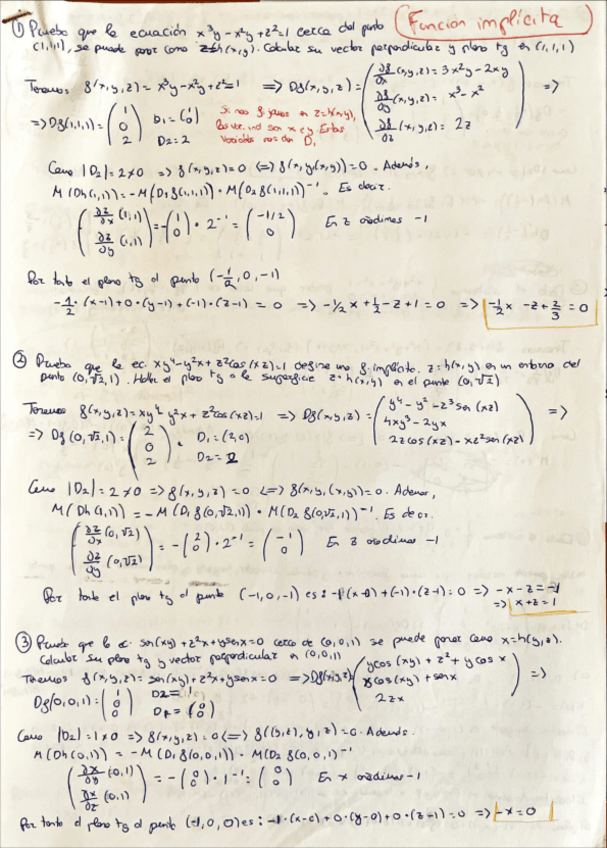 ① Prueba que la ecuación x³y - x²y + z² = 1 cerca del punto (Función implícita)
(1,1,1), se puede poner como z=h(x,y). Calcular su vector perpendicular y plano tg en (1,1,1)
Tenemos f(x,y,z) = x³y - x²y + z² = 1 ⇒ Df(x,y,z) = ( ∂f/∂x (x,y,z) = 3x²y - 2xy ⇒
∂f/∂y (x,y,z) = x³ - x²
∂f/∂z (x,y,z) = 2z )
⇒ Df(1,1,1) = (1 0 2) D₁ = (1 0) D₂ = 2
Si nos piden en z = h(x,y),
son x e y. Estas
variables nos dan D₁
Como |D₂| = 2 ≠ 0 ⇒ f(x,y,z) = 0 ⇔ f(x,y(x,y)) = 0. Además,
M(Dh(1,1)) = -M(D₁f(1,1,1)) · M(D₂f(1,1,1))⁻¹. Es decir.
( ∂z/∂x (1,1) ∂z/∂y (1,1) ) = -(1 0) · 2⁻¹ = (-1/2 0) En z añadimos -1
Por tanto el plano tg al punto (-1/2, 0, -1)
-1/2 · (x-1) + 0 · (y-1) + (-1) · (z-1) = 0 ⇒ -1/2 x + 1/2 - z + 1 = 0 ⇒ -1/2 x - z + 2/3 = 0
② Prueba que la ec. xy⁴ - y²x + z²cos(xz) = 1 define una f. implícita. z = h(x,y) en un entorno del
punto (0,√2,1). Halla el plano tg a la superficie z = h(x,y) en el punto (0,√2)
Tenemos f(x,y,z) = xy⁴ y²x + z²cos(xz) = 1 ⇒ Df(x,y,z) = ( y⁴ - y² - z³sen(xz) ⇒
4xy³ - 2yx
2z cos(xz) - xz²sen(xz) )
⇒ Df(0,√2,1) = (2 0 2). D₁ = (2,0) D₂ = 2
Como |D₂| = 2 ≠ 0 ⇒ f(x,y,z) = 0 ⇔ f(x,y,(x,y)) = 0. Además,
M(Dh(1,1)) = -M(D₁f(0,√2,1)) · M(D₂f(0,√2,1))⁻¹. Es decir.
( ∂z/∂x (0,√2) ∂z/∂y (0,√2) ) = -(2 0) · 2⁻¹ = (-1 0) En z añadimos -1
Por tanto el plano tg al punto (-1,0,-1) es: -1(x-0) + (-1) · (z-1) = 0 ⇒ -x - z = -1
⇒ x + z = 1
③ Prueba que la ec. sen(xy) + z²x + ysenx = 0 cerca de (0,0,1) se puede poner como x = h(y,z).
Calcular su plano tg y vector perpendicular en (0,0,1)
Tenemos f(x,y,z) = sen(xy) + z²x + ysenx = 0 ⇒ Df(x,y,z) ( ycos(xy) + z² + ycosx ⇒
xcos(xy) + senx
2zx )
Df(0,0,1) = (1 0 0) D₂ = 1 D₁ = (0 0)
Como |D₂| = 1 ≠ 0 ⇒ f(x,y,z) = 0 ⇔ f((y,z), y, z) = 0. Además.
M(Dh(0,1)) = -M(D₁f(0,0,1)) · M(D₂f(0,0,1)⁻¹
( ∂x/∂y (0,1) ∂x/∂z (0,1) ) = -(0 0) · 1⁻¹ = (0 0) En x añadimos -1
Por tanto el plano tg al punto (-1,0,0) es: -1·(x-0) + 0·(y-0) + 0·(z-1) = 0 ⇒ -x = 0